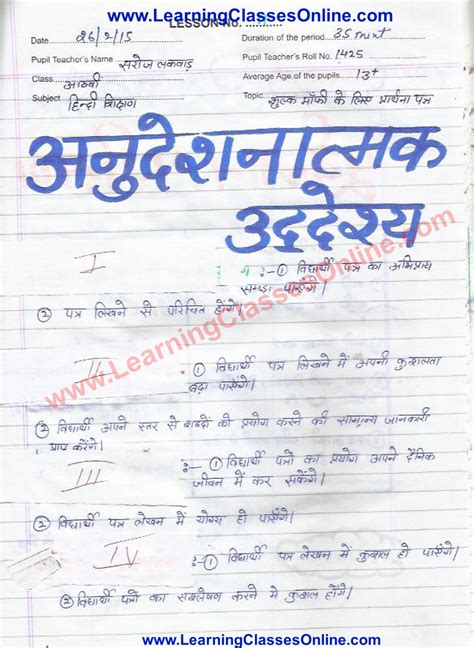 www.LearningClassesOnline.com
LESSON No. ............
Date 26/2/15 Duration of the period 35 mint
Pupil Teacher's Name सरोज लकवाड़ Pupil Teacher's Roll No. 1425
Class आठवीं Average Age of the pupils 13+
Subject हिन्दी शिक्षण Topic शुल्क माँफी के लिए प्रार्थना पत्र
अनुदेशनात्मक
उद्देश्य
I :- ① विद्यार्थी पत्र का अभिप्राय
समझ पाएँगे।
② पत्र लिखने से परिचित होंगे।
II :- ① विद्यार्थी पत्र लिखने में अपनी कुशलता
बढ़ा पाएँगे।
② विद्यार्थी अपने स्तर से शब्दों को प्रयोग करने की सामान्य जानकारी
प्राप्त करेंगे।
III :- ① विद्यार्थी पत्रों का प्रयोग अपने दैनिक
जीवन में कर सकेंगे।
② विद्यार्थी पत्र लेखन में योग्य हो पाएँगे।
IV :- ① विद्यार्थी पत्र लेखन में कुशल हो पाएँगे।
② विद्यार्थी पत्रों का संश्लेषण करने मे कुशल होंगे।
www.LearningClassesOnline.com
www.LearningClassesOnline.com